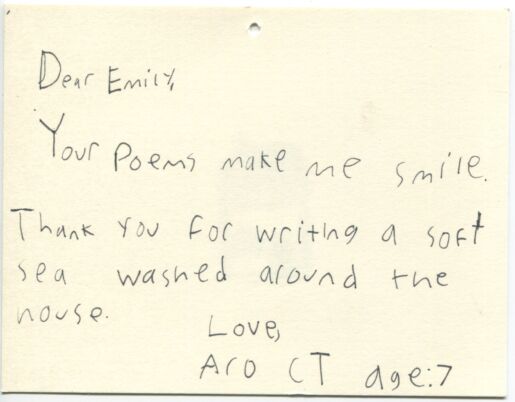 Dear Emily,
Your Poems make me smile.
Thank you for writing a soft
sea washed around the
house.
Love,
Aro CT age:7